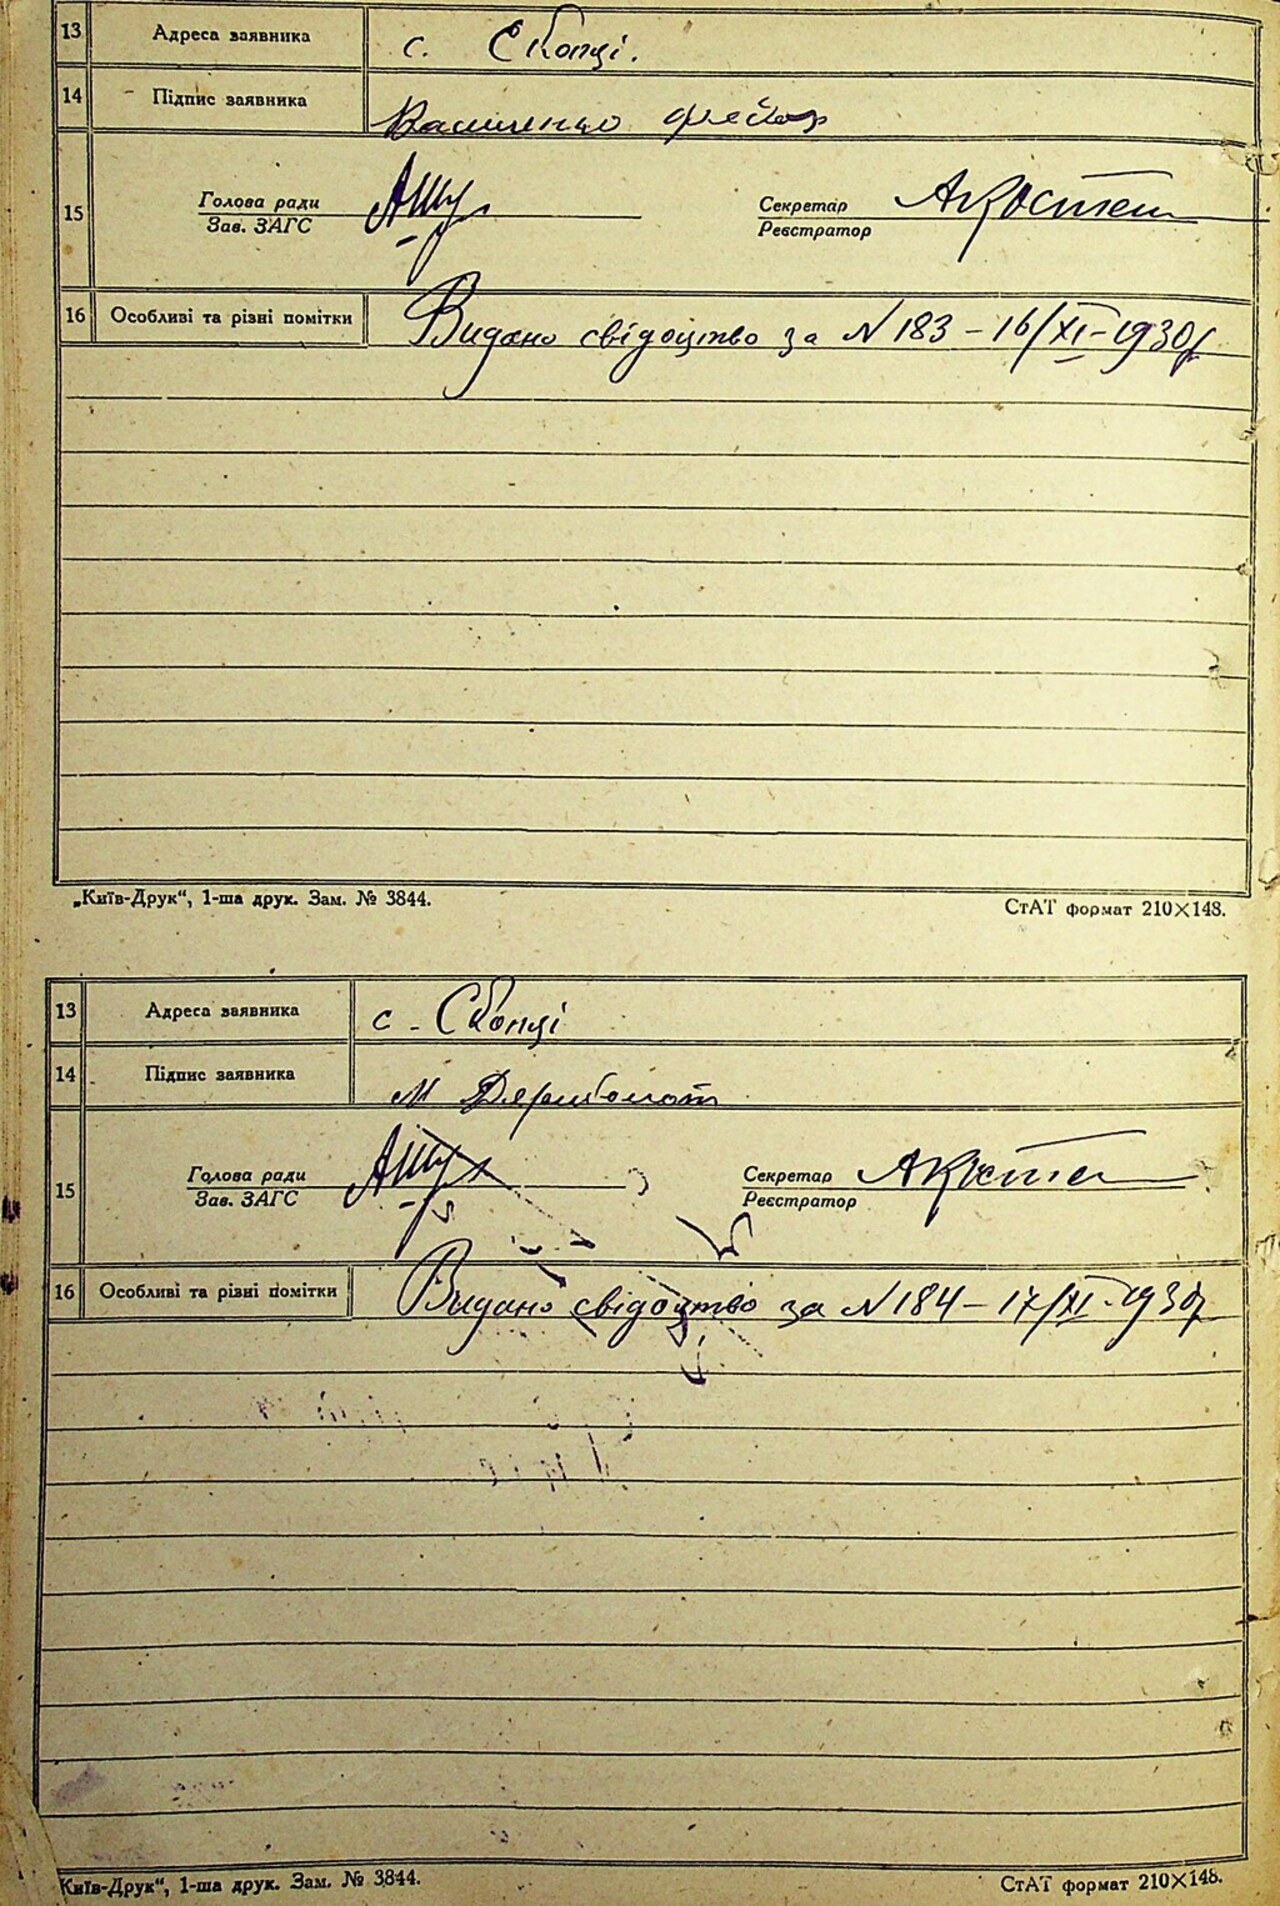 13 Адреса заявника с. Скопці.
14 Підпис заявника
15 Голова ради Секретар
Зав. ЗАГС Реєстратор
16 Особливі та різні помітки Видано свідоцтво за N 183 – 16/XI – 1930 р
„Київ-Друк“, 1-ша друк. Зам. № 3844. СтАТ формат 210×148.
13 Адреса заявника с. Скопці
14 Підпис заявника М
15 Голова ради Секретар
Зав. ЗАГС Реєстратор
16 Особливі та різні помітки Видано свідоцтво за N 184 – 17/XI – 1930 р
Київ-Друк“, 1-ша друк. Зам. № 3844. СтАТ формат 210×148.